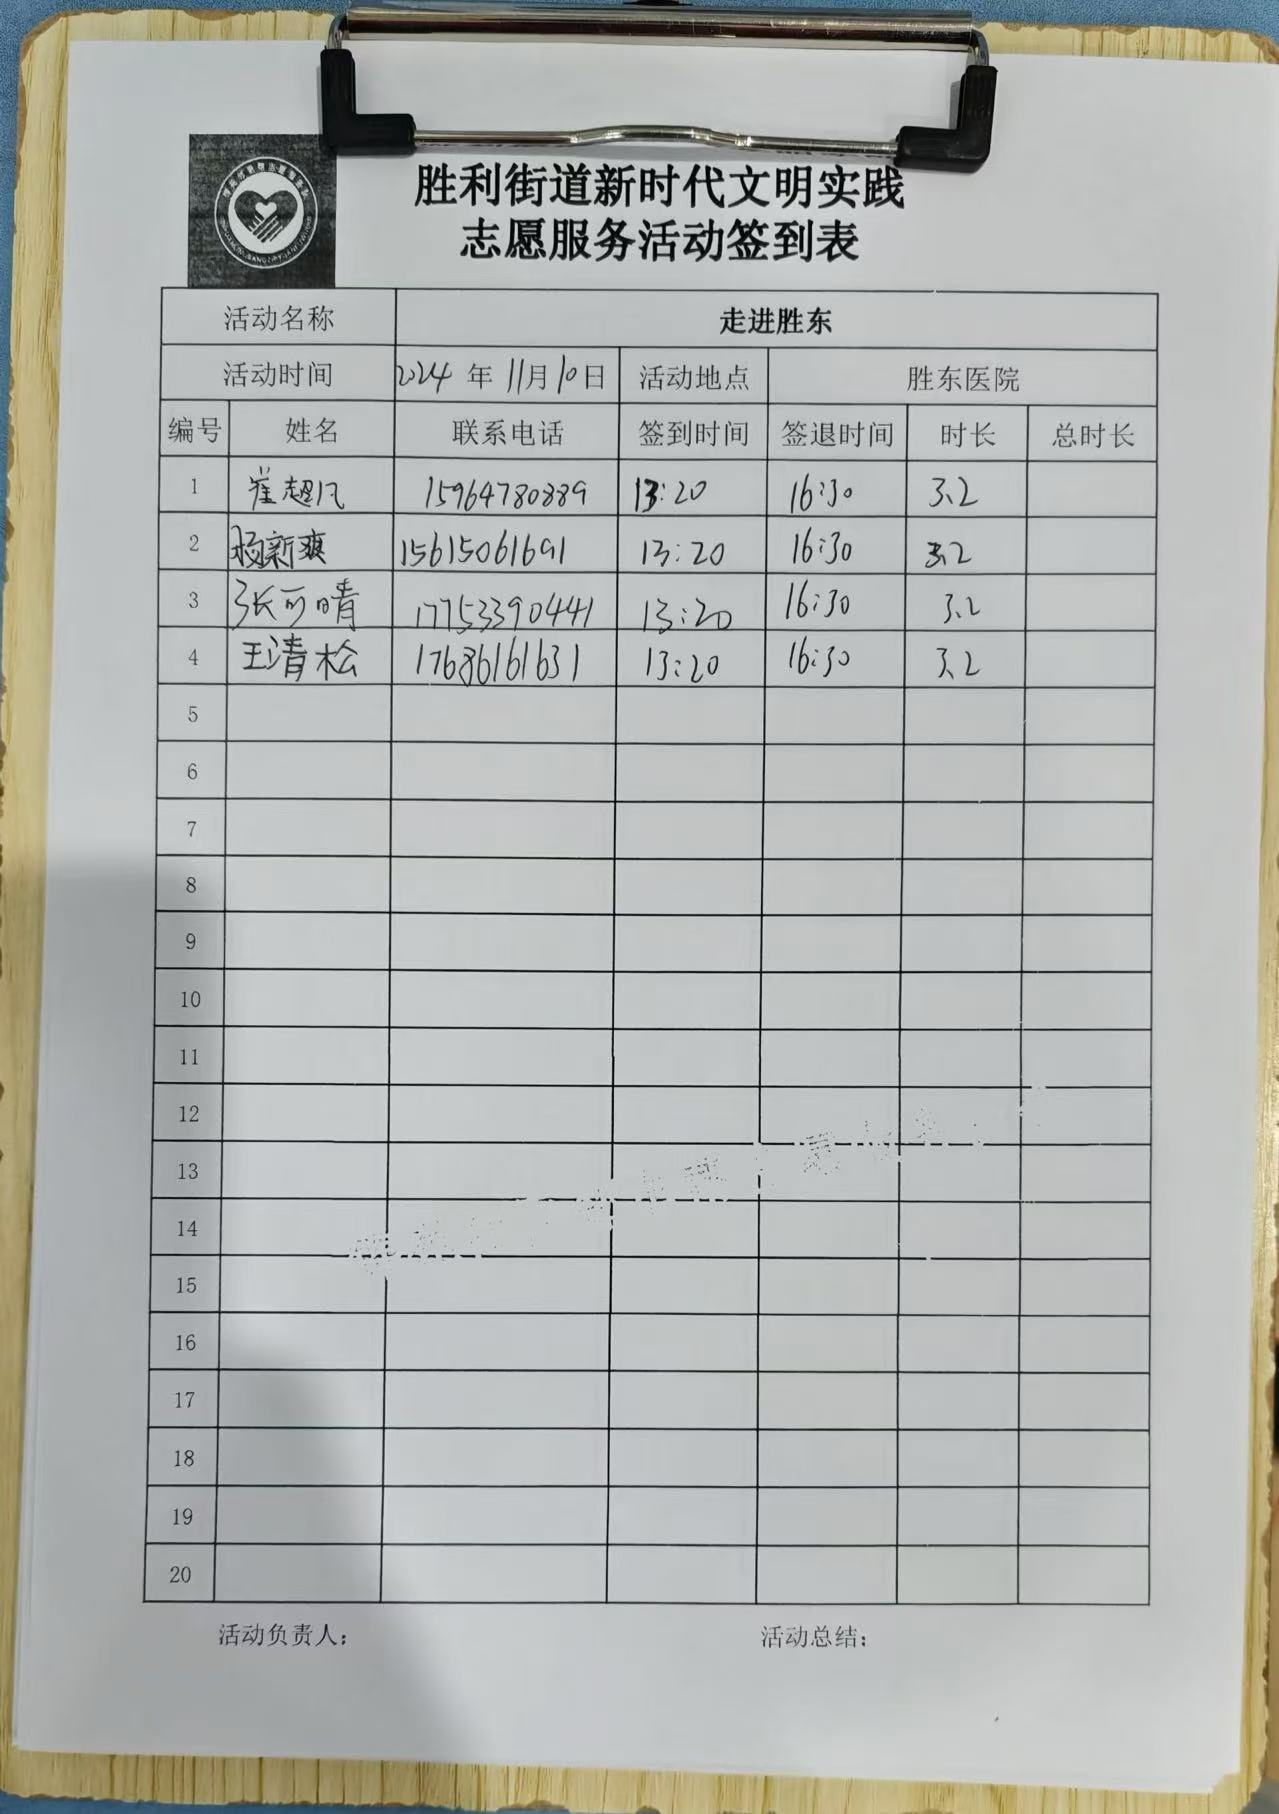 胜利街道新时代文明实践
志愿服务活动签到表
活动名称 走进胜东
活动时间 2024 年 11月 10日 活动地点 胜东医院
编号 姓名 联系电话 签到时间 签退时间 时长 总时长
1 崔超凡 15964780889 13:20 16:30 3.2
2 杨新爽 15615061691 13:20 16:30 3.2
3 张可晴 17753390441 13:20 16:30 3.2
4 王清松 17686161631 13:20 16:30 3.2
5
6
7
8
9
10
11
12
13
14
15
16
17
18
19
20
活动负责人: 活动总结: